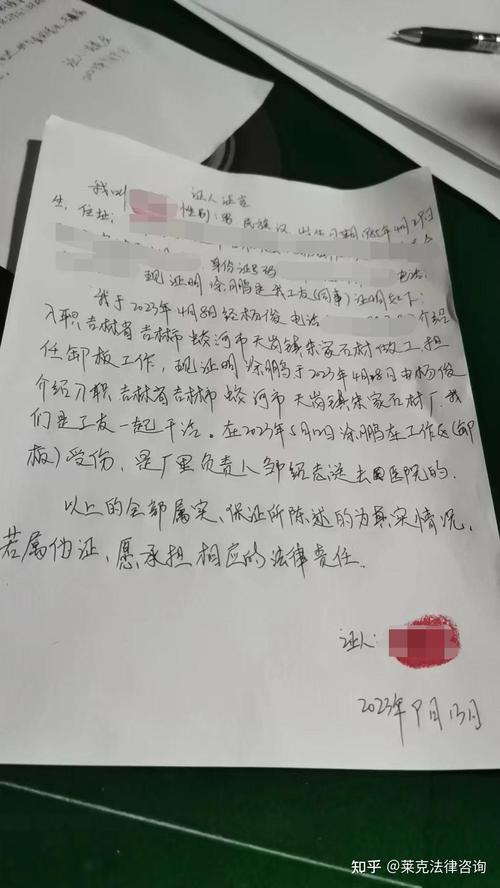 证人证言
我叫 性别:男 民族汉 出生日期1985年4月29日
生,住址:
身份证号码 电话:
现证明涂鹏是我工友(同事)证明如下:
我于2023年4月8日经杨俊电话 介绍
入职吉林省吉林市蛟河市天岗镇宋家石材做工,担
任卸板工作,现证明涂鹏于2023年4月08日由杨俊
介绍入职吉林省吉林市蛟河市天岗镇宋家石材厂.我
们是工友一起干活。在2023年5月12日涂鹏在工作区(卸
板)受伤,是厂里负责人邹 志送去医院的.
以上的全部属实、保证所陈述的为真实情况,
若属伪证、愿承担相应的法律责任.
证人:
2023年9月13日
知乎 @莱克法律咨询